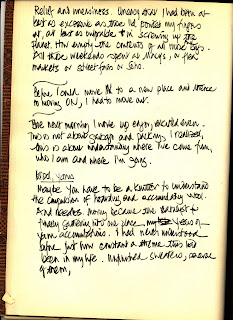 Relief and uneasiness. Uneasy as I had been at
least as excessive as those I'd pointed my fingers
at, at least as culpable in screwing up the
planet. How empty the contents of all those bags.
All those weekends spent at Macy's, or flea
markets or street fairs or Soho.
Before I could move IN to a new place and
moving ON, I had to move out.
The next morning I woke up enjoy, excited even.
This is not about garbage and packing, I realized,
this is about understanding where I've come from,
who I am and where I'm going.
Maybe you have to be a knitter to understand
the compulsion of hoarding and accumulating wool.
And needles. Moving became the catalyst to
finally gathering into one place my years of
yarn accumulations. I had never understood
before just how constant a theme this had
been in my life. Unfinished sweaters,
of them,